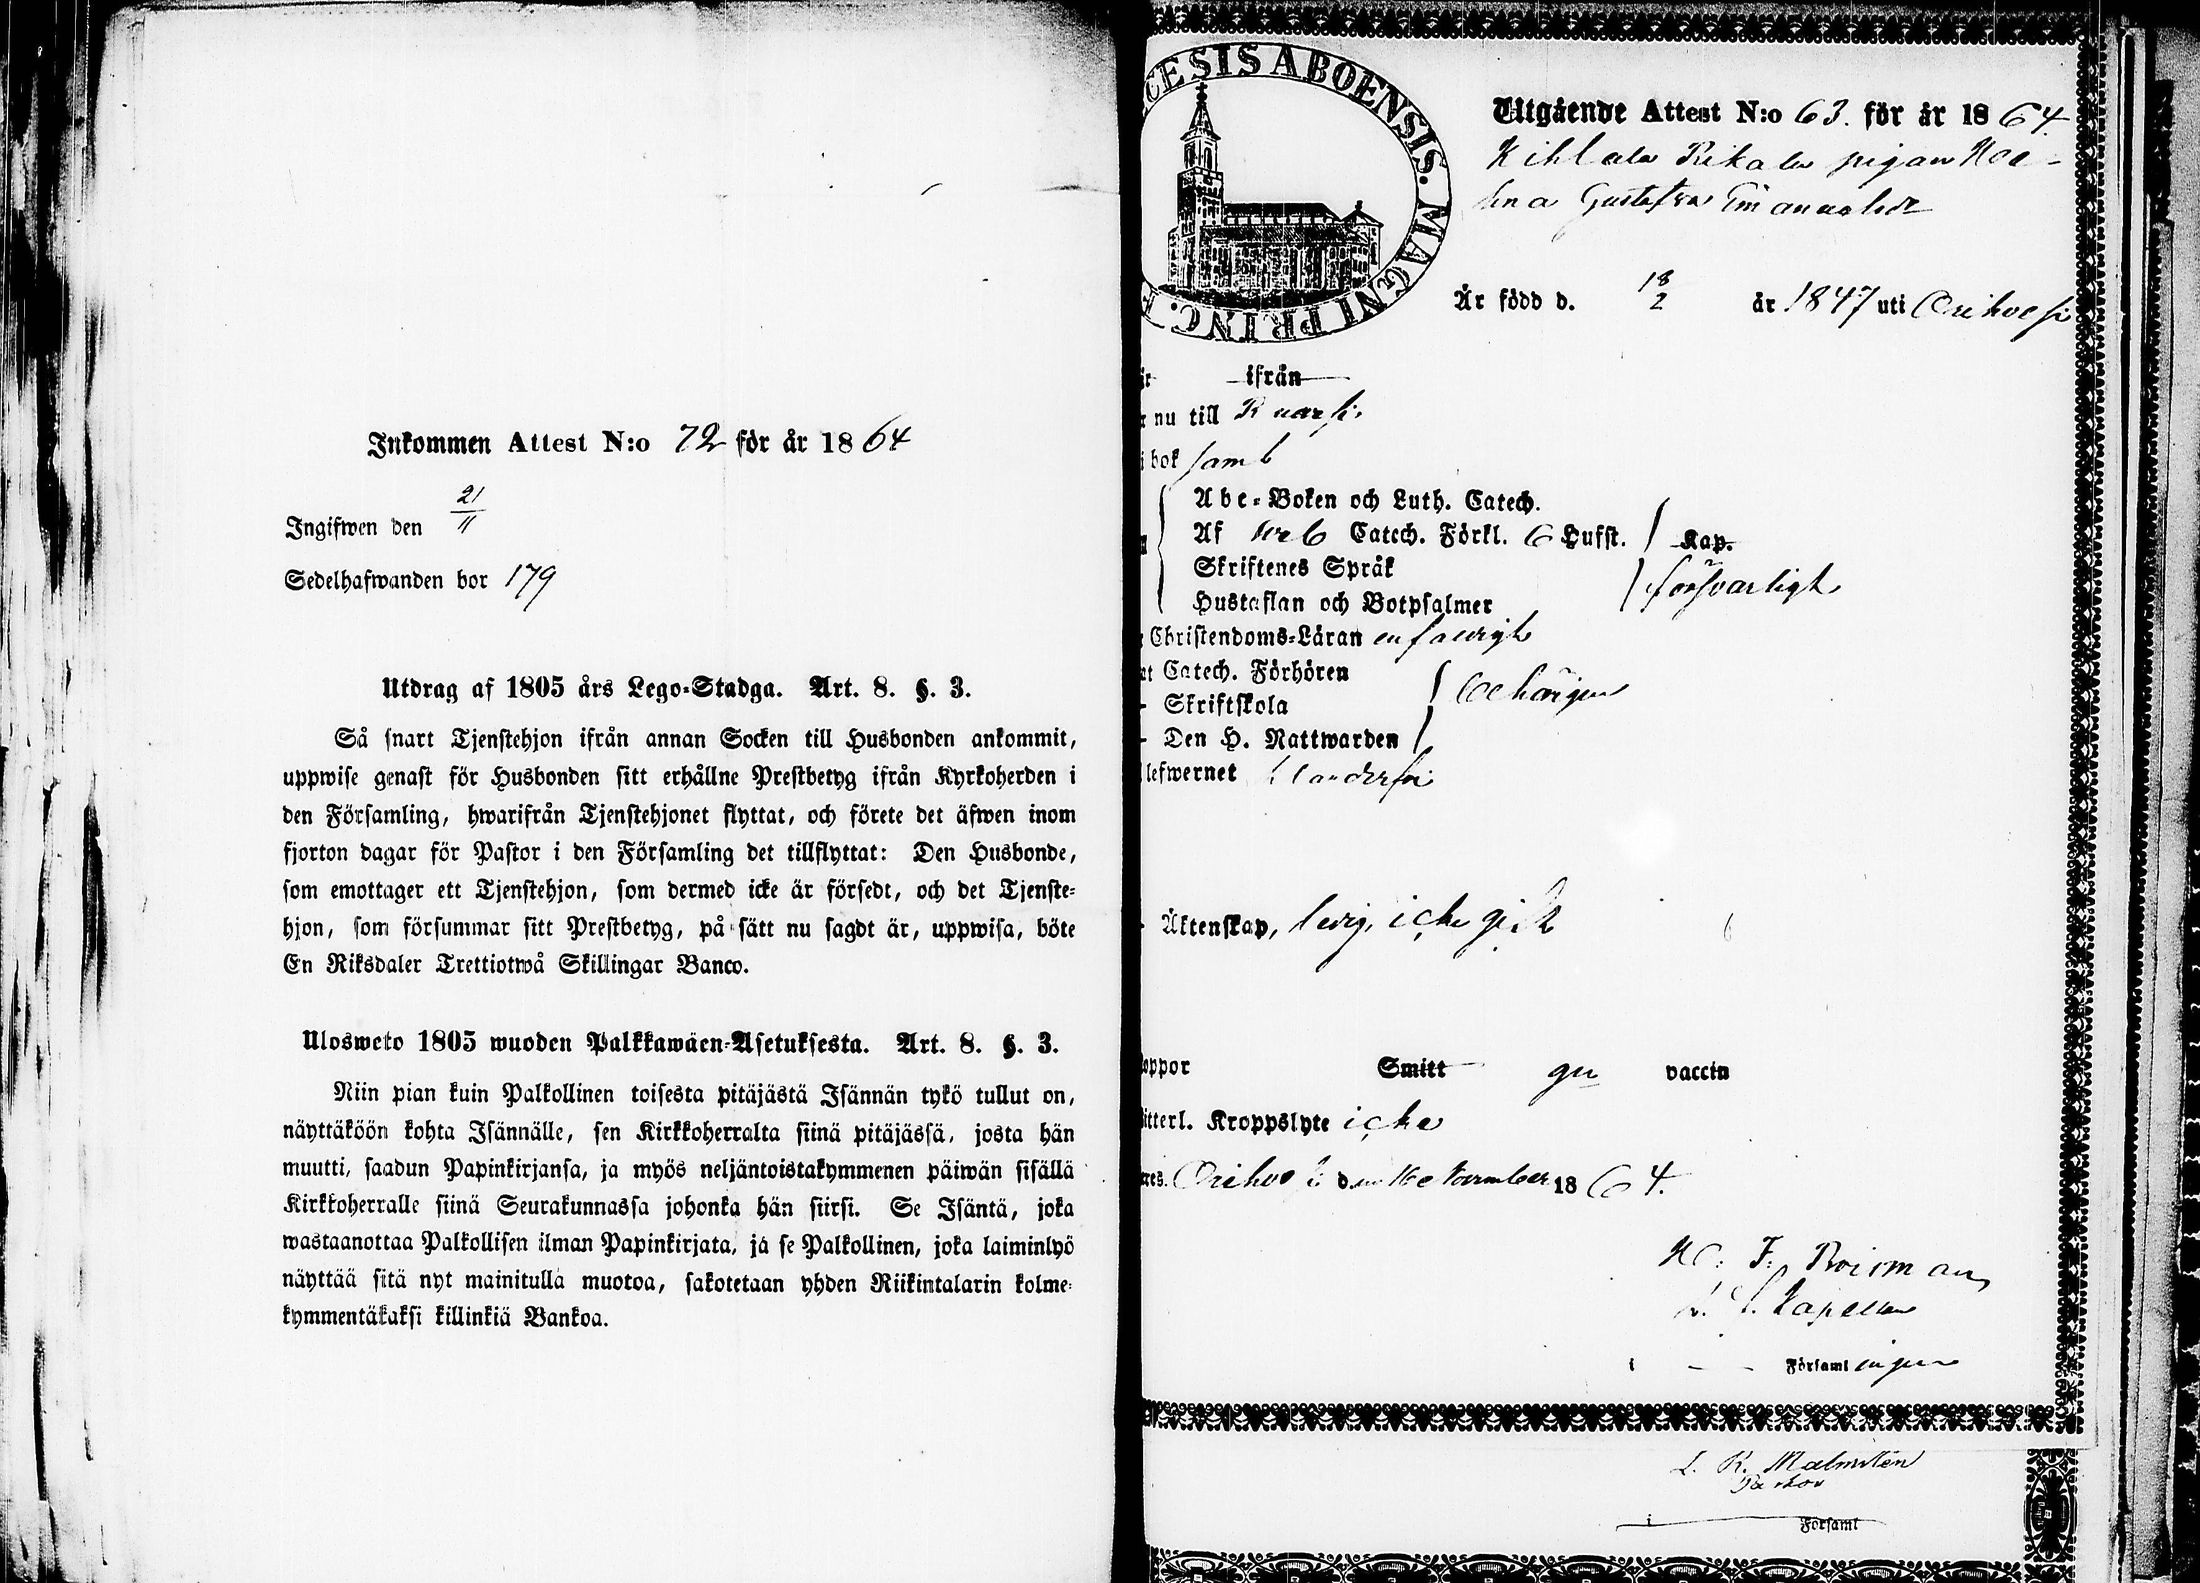 Inkommen Attest N:o 72 för år 1864
21
11
Ingifwen den
Sedelhafwanden bor 179
Utdrag af 1805 års Lego-Stadga. Art. 8. §. 3.
Så snart Tjenstehjon ifrån annan Socken till Husbonden ankommit,
uppwise genast för Husbonden sitt erhållne Prestbetyg ifrån Kyrkoherden i
den Församling, hwarifrån Tjenstehjonet flyttat, och förete det äfwen inom
fjorton dagar för Pastor i den Församling det tillflyttat: Den Husbonde,
som emottager ett Tjenstehjon, som dermed icke är försedt, och det Tjenste-
hjon, som försummar sitt Prestbetyg, på sätt nu sagdt är, uppwisa, böte
En Riksdaler Trettiotwå Skillingar Banco.
Ulosweto 1805 wuoden Palkkawäen-Asetuksesta. Art. 8. §. 3.
Niin pian kuin Palkollinen toisesta pitäjästä Isännän tykö tullut on,
näyttäköön kohta Isännälle, sen Kirkkoherralta siinä pitäjässä, josta hän
muutti, saadun Papinkirjansa, ja myös neljäntoistakymmenen päiwän sisällä
Kirkkoherralle siinä Seurakunnassa johonka hän siirsi. Se Isäntä, joka
wastaanottaa Palkollisen ilman Papinkirjata, ja se Palkollinen, joka laiminlyö
näyttää sitä nyt mainitulla muotoa, sakotetaan yhden Riikintalarin kolme-
kymmentäkaksi killinkiä Bankoa.
CESIS ABOENSIS. MAGNI PRINC. F
Utgående Attest N:o 63. för år 1864.
Kihlala Rikala pigan
Gustafva Emanuelsdr
Är född d. 18/2 år 1847 uti Orihvesi
ifrån
nu till Ruovesi
bok samt
Abc-Boken och Luth. Catech.
Af Catech. Förkl. 6 Hufst. Kap.
Skriftenes Språk
försvarligt
Hustaflan och Botpsalmer
Christendoms-Läran enfaldigt
Catech. Förhören
behörigen
Skriftskola
Den H. Nattwarden
lefwernet klanderfri
Äktenskap, ledig, icke gift
oppor Smitt gn vaccin
itterl. Kroppslyte icke
res. Orihvesi den 16 November 1864.
F: Roisman
Kapellan
i Församlingen
L. R. Malmstén
Pastor
i Församl